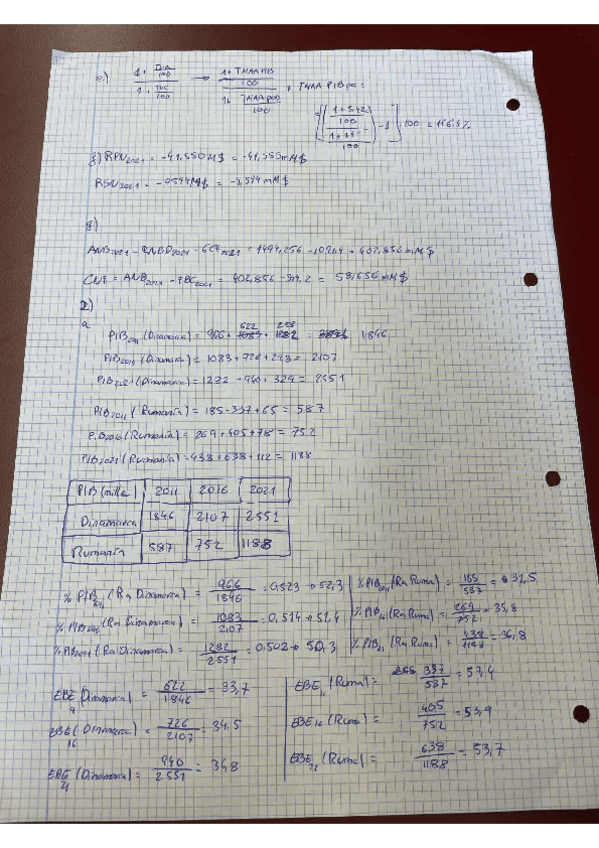 e.) (1 + TVA/100) / (1 + TVC/100) → (1 + TMAA PIB/100) / (1 + TMAA pob/100), TMAA PIBpc =
= [((1 + 5,42/100) / (1 + 3,5/100)) - 1] · 100 = 156,4%
f) RPN2021 = -41.550M$ = -41,550mM$
RSN2021 = -0594M$ = -0,594mM$
g)
ANB2021 - RNBD2021 - GCF2021 = 1494,056 - 1091,4 = 402,856 mM$
CNF = ANB2021 - FBC2021 = 402,856 - 344,2 = 58,656 mM$
2)
a
PIB2011 (Dinamarca) = 966 + 622 + 258 = 1846
PIB2016 (Dinamarca) = 1083 + 726 + 298 = 2107
PIB2021 (Dinamarca) = 1282 + 940 + 329 = 2551
PIB2011 (Rumanía) = 185 + 337 + 65 = 587
PIB2016 (Rumanía) = 269 + 405 + 78 = 752
PIB2021 (Rumanía) = 438 + 638 + 112 = 1188
PIB (mille) 2011 2016 2021
Dinamarca 1846 2107 2551
Rumanía 587 752 1188
% PIB2011 (Ra Dinamarca) = 966/1846 = 0,523 → 52,3
% PIB11 (Ra Ruma) = 185/587 = 31,5
% PIB2016 (Ra Dinamarca) = 1083/2107 = 0,514 → 51,4
% PIB16 (Ra Ruma) = 269/752 = 35,8
% PIB2021 (Ra Dinamarca) = 1282/2551 = 0,502 → 50,3
% PIB21 (Ra Ruma) = 438/1188 = 36,8
EBE11 (Dinamarca) = 622/1846 = 33,7
EBE11 (Ruma) = 337/587 = 57,4
EBE16 (Dinamarca) = 726/2107 = 34,5
EBE16 (Ruma) = 405/752 = 53,9
EBE21 (Dinamarca) = 940/2551 = 36,8
EBE21 (Ruma) = 638/1188 = 53,7